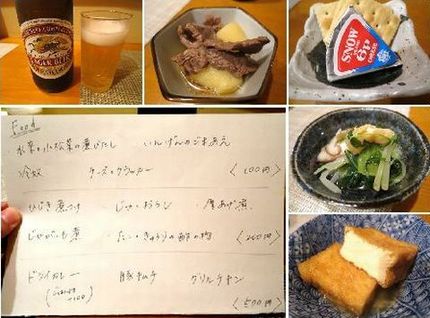 KIRIN
LAGER BEER
SNOW
6P
Food
・水菜と小松菜の煮びたし ・いんげんのごまあえ
・冷奴 ・チーズとクラッカー 〈100円〉
・ひじき煮つけ ・じゃこおろし ・厚あげ煮
・じゃがいも煮 ・たこときゅうりの酢の物 〈200円〉
・ドライカレー ・豚キムチ ・グリルチキン
〈500円〉